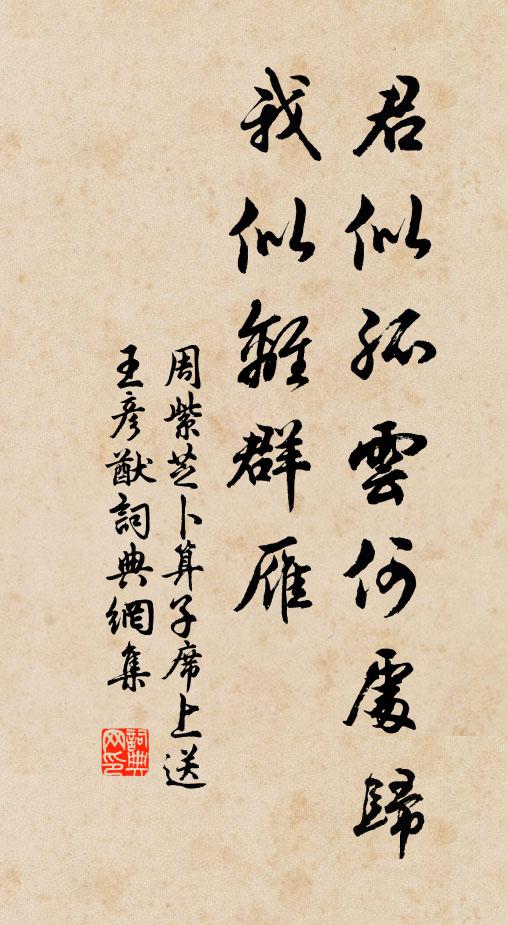 君似孤雲何處歸
我似離群雁
周紫芝卜算子席上送
王彥猷詞典網集
詞典
网印